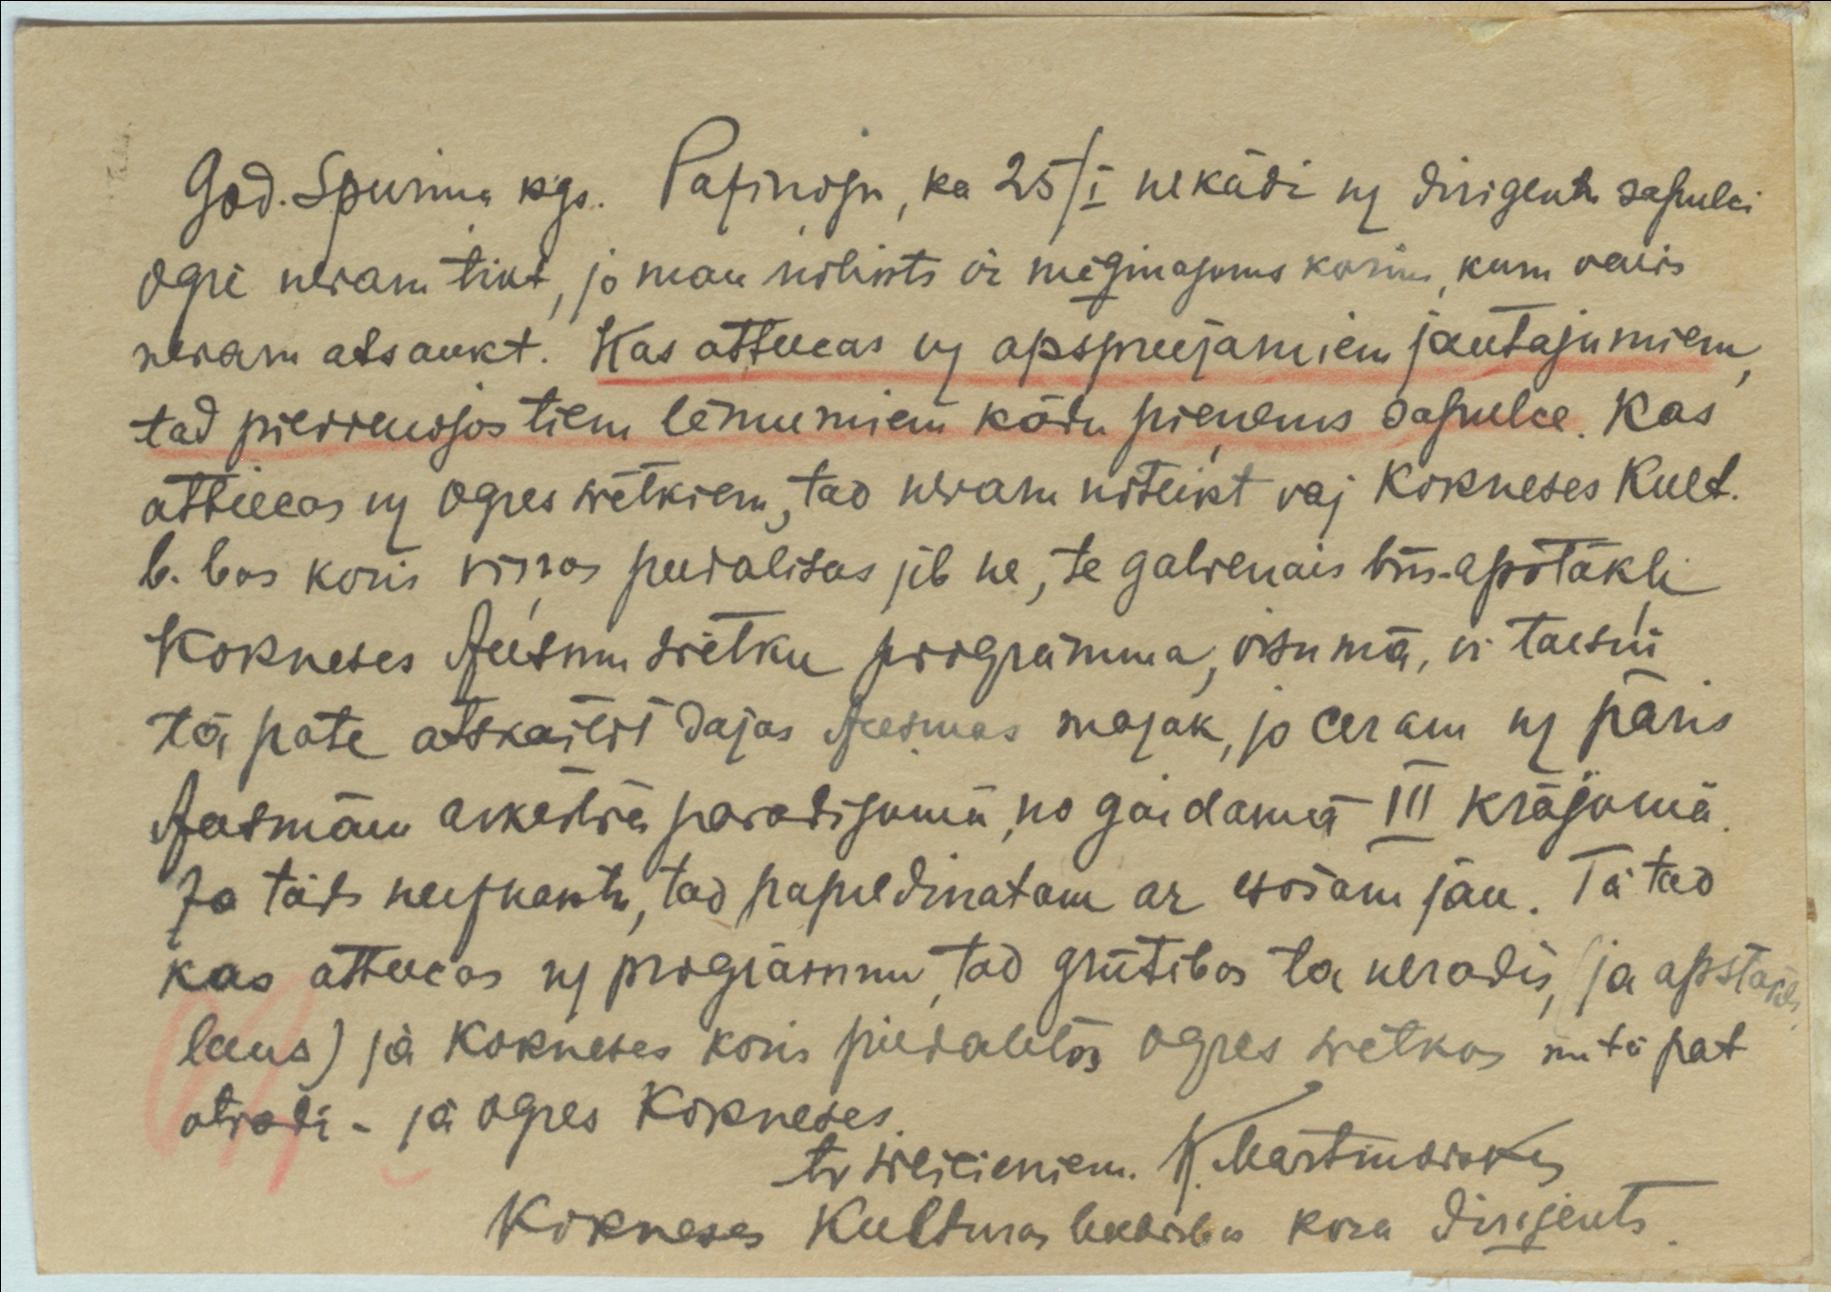 God. Spuriņa kgs. Paziņoju, ka 25/I nekādi uz dirigentu sapulci
Ogrē nevaru tikt, jo man nolikts ir mēģinajums korim, kuru vairs
nevaru atsaukt. Kas attiecas uz apspriežamiem jautajumiem,
tad pievienojos tiem lēmumiem kādu pieņems sapulce. Kas
attiecas uz Ogres svētkiem, tad nevaru noteikt vaj Kokneses Kult.
b.bas koris viņos piedalisas jeb ne, te galvenais būs apstākļi
Kokneses dziesmu svētku programma, visumā, ir taisni
tā pate atskaitot dažas dziesmas mazak, jo ceram uz pāris
dziesmām orķestra pavadijumā, no gaidamā III krājuma.
Ja tāds neiznāktu, tad papildinatam ar esošām jau. Tā tad
kas attiecas uz programmu, tad grūtibas ta neradīs, (ja apstākļi
ļaus) ja Kokneses koris piedalitos Ogres svētkos un tā pat
otradi - ja Ogres Kokneses.
ar sveicieniem. K. Martinovskis
Kokneses Kulturas biedribas kora dirigents.